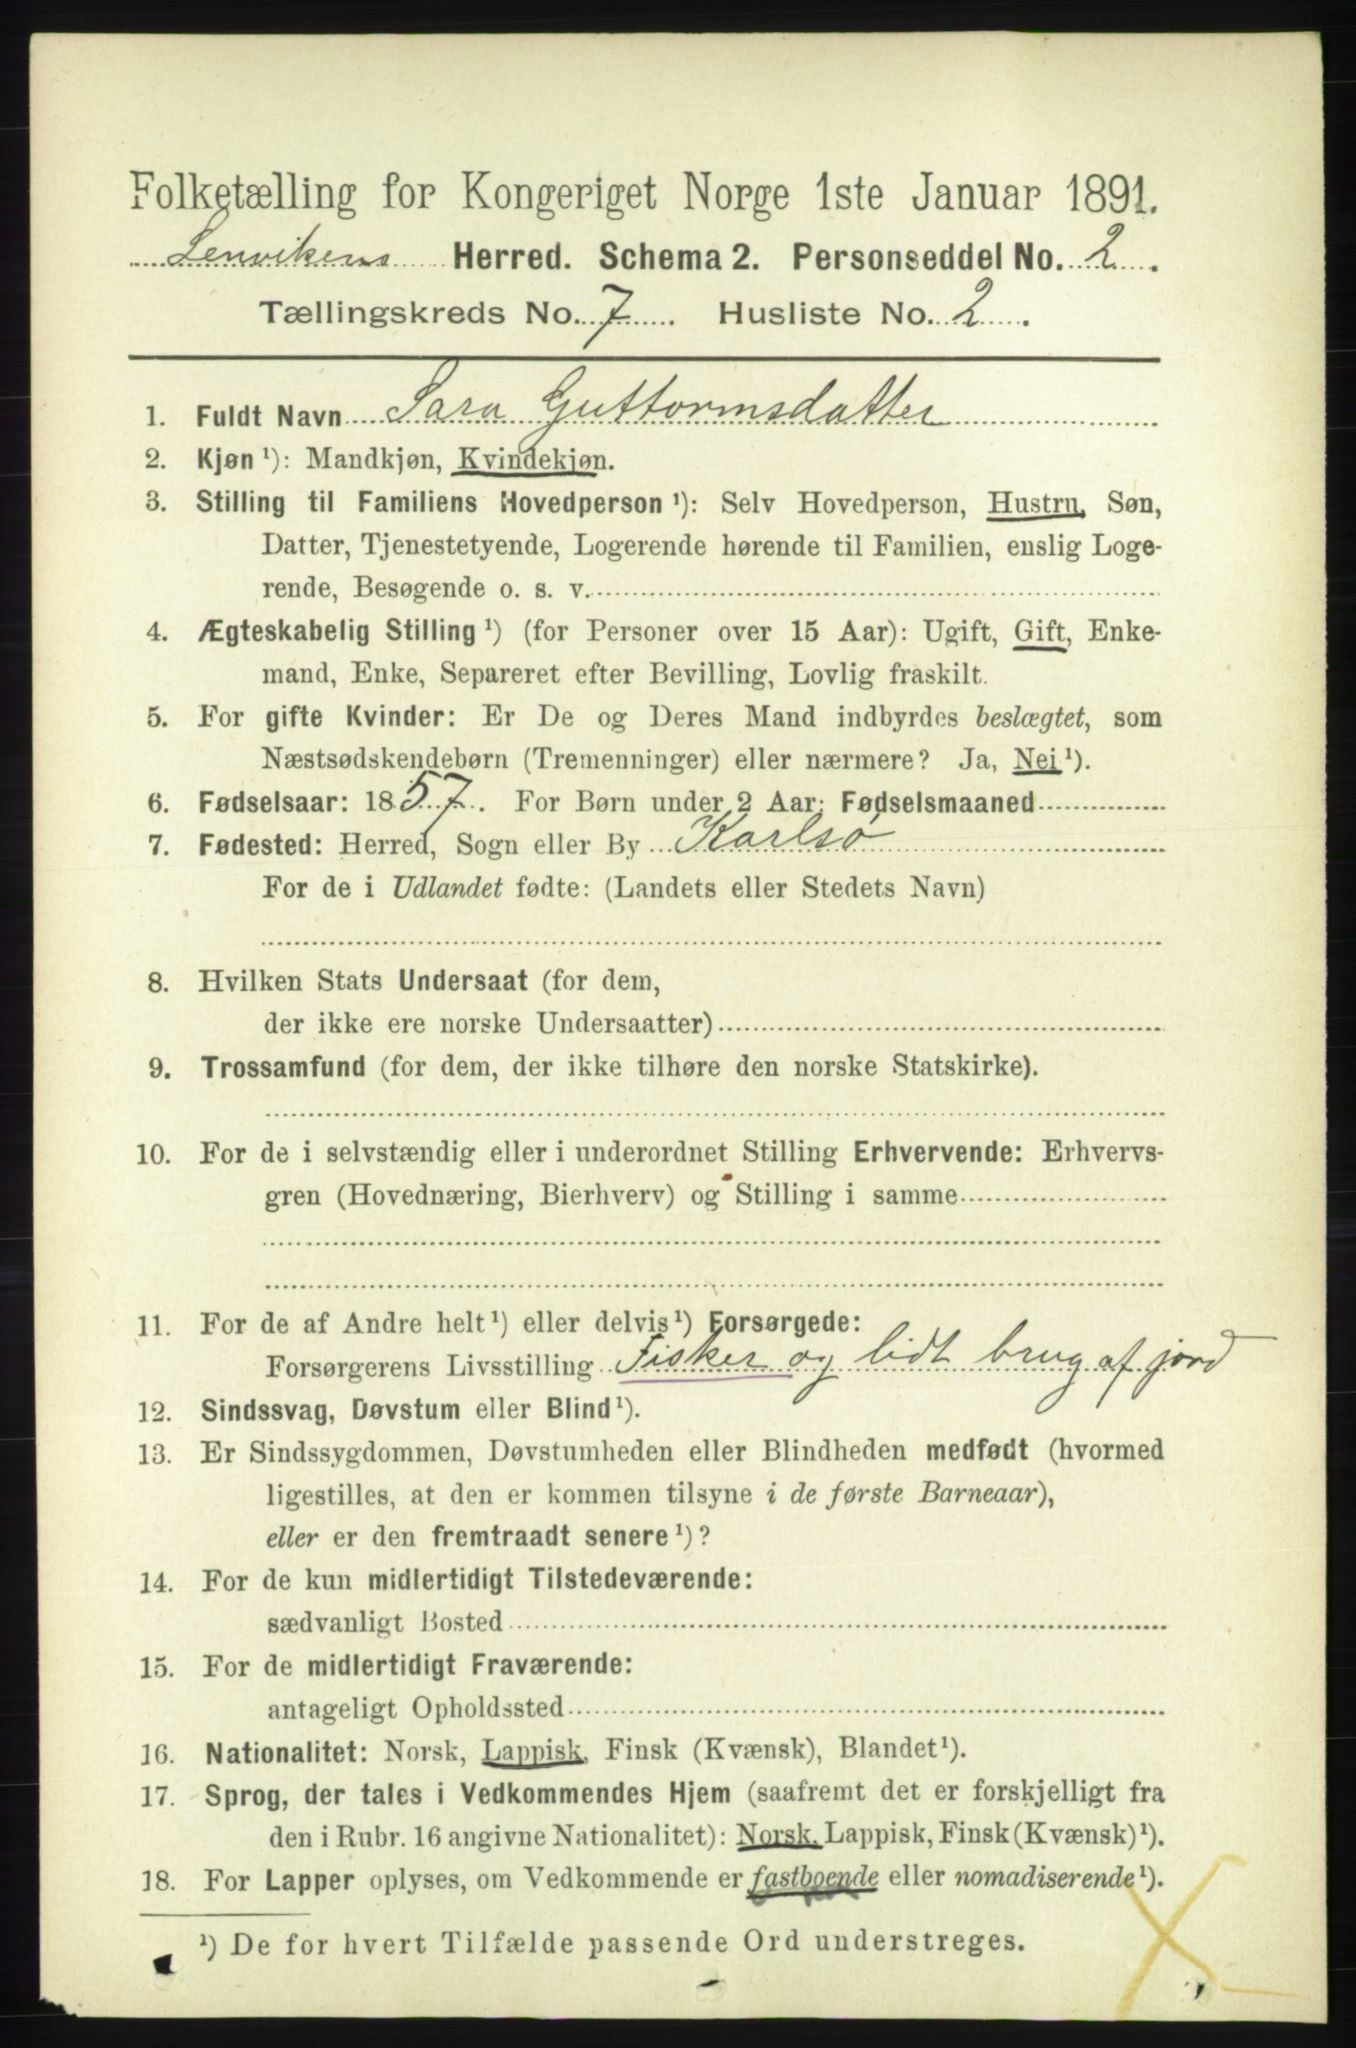 Folketælling for Kongeriget Norge 1ste Januar 1891.
Lenvikens Herred. Schema 2. Personseddel No. 2.
Tællingskreds No. 7. Husliste No. 2.
1. Fuldt Navn Sara Guttormsdatter
2. Kjøn ¹): Mandkjøn, Kvindekjøn.
3. Stilling til Familiens Hovedperson ¹): Selv Hovedperson, Hustru, Søn,
Datter, Tjenestetyende, Logerende hørende til Familien, enslig Loge-
rende, Besøgende o. s. v.
4. Ægteskabelig Stilling ¹) (for Personer over 15 Aar): Ugift, Gift, Enke-
mand, Enke, Separeret efter Bevilling, Lovlig fraskilt.
5. For gifte Kvinder: Er De og Deres Mand indbyrdes beslægtet, som
Næstsødskendebørn (Tremenninger) eller nærmere? Ja, Nei ¹).
6. Fødselsaar: 1857. For Børn under 2 Aar: Fødselsmaaned
7. Fødested: Herred, Sogn eller By Karlsø
For de i Udlandet fødte: (Landets eller Stedets Navn)
8. Hvilken Stats Undersaat (for dem,
der ikke ere norske Undersaatter)
9. Trossamfund (for dem, der ikke tilhøre den norske Statskirke).
10. For de i selvstændig eller i underordnet Stilling Erhvervende: Erhvervs-
gren (Hovednæring, Bierhverv) og Stilling i samme
11. For de af Andre helt ¹) eller delvis ¹) Forsørgede:
Forsørgerens Livsstilling Fisker og lidt brug af jord
12. Sindssvag, Døvstum eller Blind ¹).
13. Er Sindssygdommen, Døvstumheden eller Blindheden medfødt (hvormed
ligestilles, at den er kommen tilsyne i de første Barneaar),
eller er den fremtraadt senere ¹)?
14. For de kun midlertidigt Tilstedeværende:
sædvanligt Bosted
15. For de midlertidigt Fraværende:
antageligt Opholdssted
16. Nationalitet: Norsk, Lappisk, Finsk (Kvænsk), Blandet ¹).
17. Sprog, der tales i Vedkommendes Hjem (saafremt det er forskjelligt fra
den i Rubr. 16 angivne Nationalitet): Norsk, Lappisk, Finsk (Kvænsk) ¹).
18. For Lapper oplyses, om Vedkommende er fastboende eller nomadiserende ¹).
¹) De for hvert Tilfælde passende Ord understreges.